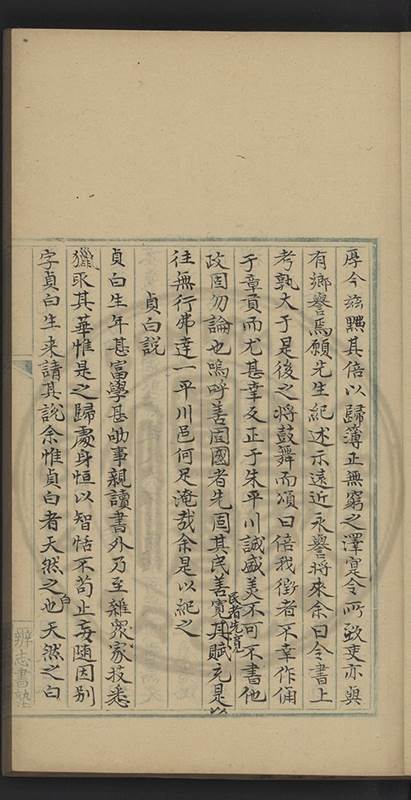 厚今茲興其倍以歸薄正無窮之澤寔令所致吏亦與
有鄉譽焉願先生紀述示遠近永譽將來余曰令書上
考孰大于是後之將鼓舞而頌曰倍我徵者不幸作俑
于章貢而尤甚幸反正于朱平川誠盛美不可不書他
政固勿論也嗚呼善固國者先固其民善寬民者先寬其賦充是以
往無行弗達一平川邑何足淹哉余是以紀之
貞白說
貞白生年甚富學甚劬事親讀書外乃至雜衆家技悉
獵取其華惟是之歸處身恒以智恬不苟止妄隨因別
字貞白生来請其說余惟貞白者天然之白也天然之白
辨志書塾